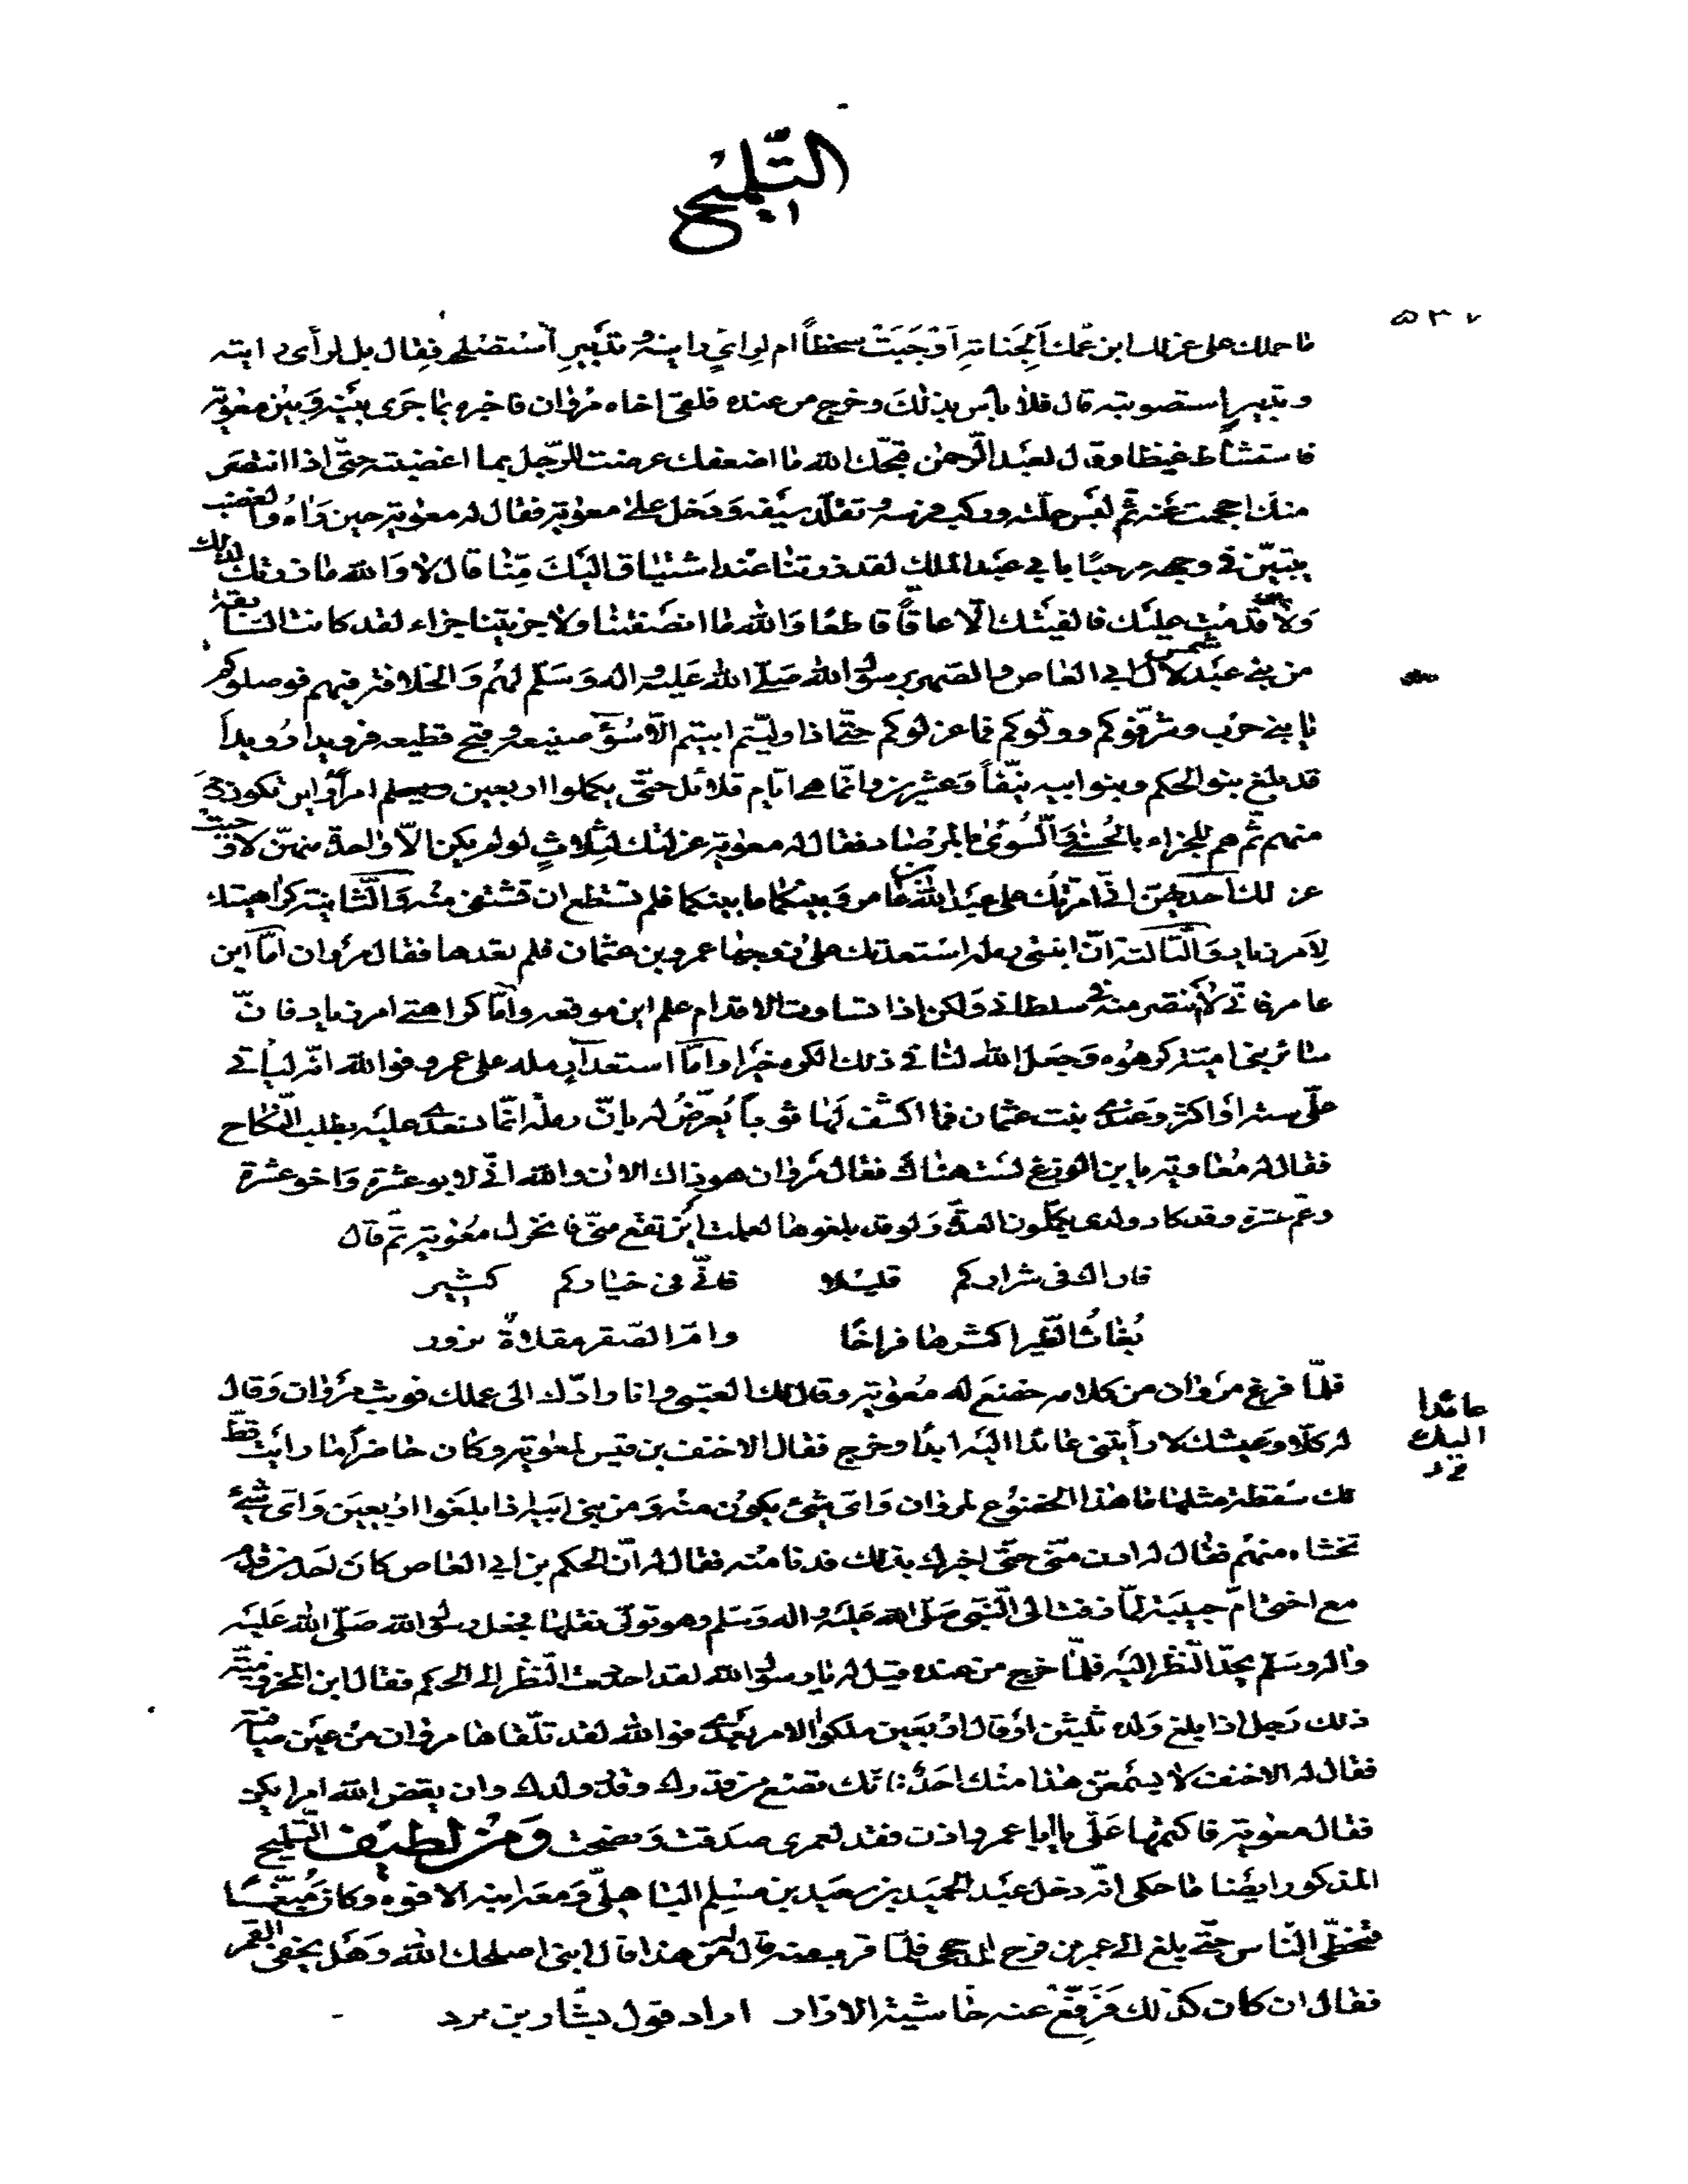 التلميح
٥٣٧
ما حملك على عزلك ابن عمك ألجناية أوجبت سخطاً ام لرايٍ رايته وتدبيرٍ استصلحه فقال بل لرأى رايته
وتدبيرٍ استصوبته قال فلا بأس بذلك وخرج من عنده فلقى اخاه مروان فاخبره بما جرى بينه وبين معوية
فاستشاط غيظا وقال لعبد الرحمن قبحك الله ما اضعفك عرضت للرجل بما اغضبته حتى اذا انتصر
منك احجمت عنه ثم لبس حلته وركب فرسه وتقلد سيفه ودخل على معوية فقال له معوية حين راه والغضب
يتبين في وجهه مرحبًا بابي عبد الملك لقد زرتنا عند اشتياق اليك منّا قال لا والله ما زرتك لذلك
ولا قدمت عليك فالفيتك الّا عاقّاً قاطعًا والله ما انصفتنا ولا جزيتنا جزاء لقد كانت السابقة
من بني عبد شمس لآل ابي العاص والصهر برسول الله صلى الله عليه واله وسلم لهم والخلافة فيهم فوصلوكم
يا بني حرب وشرّفوكم وولّوكم فما عزلوكم حتى اذا وليتم ابيتم الّا سوٓء صنيعة وقبح قطيعه فرويدا رويداً
قد بلغ بنو الحكم وبنوا ابيه نيّفاً وعشرين وانما هي ايام قلائل حتى يكملوا اربعين ويعلم امرأ اين تكون
منهم ثم هم للجزاء بالحسنى والسوئى بالمرصاد فقال له معوية عزلتك لثلاثٍ لو لم يكن الّا واحدة منهنّ لاوجبت
عزلك احديهن اني امرتك على عبد الله بن عامر وبينكما ما بينكما فلم تستطع ان تشتفى منه والثانية كراهيتك
لامر زياد والثالثة انّ ابنتى رملة استعدتك على زوجها عمرو بن عثمان فلم تعدها فقال مروان امّا ابن
عامر فاني لا أنتصر منه في سلطاني ولكن اذا تساوت الاقدام علم اين موقعه وأما كراهتي امر زياد فانّ
سائر بني اميّة كرهوه وجعل الله لنا في ذلك الكره خيرا وامّا استعدآء رمله على عمرو فوالله انه ليأتي
علّى سنة أو اكثر وعندى بنت عثمان فما اكشف لها ثوباً يُعرّضُ له بانّ رملة انما تستعدى عليه بطلب النكاح
فقال له معاوية يا بن الوزغ لست هناك فقال مروان هو ذاك الان والله اني لابو عشرة واخو عشرة
وعم عشرة وقد كاد ولدى يكملون العدة ولو قد بلغوها لعلمت اين تقع منّى فانخزل معوية ثم قال
فان اك فى شراركم قليلا فانّي فى خياركم كثير
بُغاثُ الطّير اكثرها فراخًا وامّ الصّقر مقلاةٌ نزور
فلمّا فرغ مروان من كلامه خضع له معوية وقال لك العتبى وانا رادّك الى عملك فوثب مروان وقال
له كلّا وعيشك لا رأيتنى عائدا اليه ابدًا وخرج فقال الاحنف بن قيس لمعوية وكان حاضراً ما رايت قطّ
عائدا
اليك
لك سقطة مثلها ما هذا الخضوع لمروان واى شئ يكون منه ومن بنى ابيه اذا بلغوا اربعين واى شئ
تخشاه منهم فقال له ادن منّى حتى اخبرك بذلك فدنا منه فقال له انّ الحكم بن ابي العاص كان احد من قدم
مع اختى امّ حبيبة لمّا زفت الى النبى صلى الله عليه واله وسلم وهو تولّى نقلها فجعل رسول الله صلى الله عليه
واله وسلم يحدّ النظر اليه فلمّا خرج من عنده قيل له يا رسول الله لقد احددت النظر الى الحكم فقال ابن المخزوميّة
ذلك رجل اذا بلغ ولده ثلثين أو قال اربعين ملكوا الامر بعدى فوالله لقد تلقاها مروان من عين صافية
فقال له الاحنف لا يسمعن هذا منك احدٌ فانّك تضع من قدرك وقدر ولدك وان يقض الله امرا يكن
فقال معوية فاكتمها علّى يا ابا عمر واذن فقد لعمرى صدقت ونصحت ومن لطيف التلميح
المذكور ايضا ما حكى انه دخل عبد الحميد بن سعيد بن مسلم الباهلّى ومعه ابنه الافوه وكان مبغّضًا
فتخطّى النّاس حتّى بلغ الى عمر بن فرج الرخجى فلمّا قرب منه قال لمن هذا قال ابنى اصلحك الله وهل يخفى القمر
فقال ان كان كذلك فرفع عنه حاشية الازار اراد قول بشّار بن برد